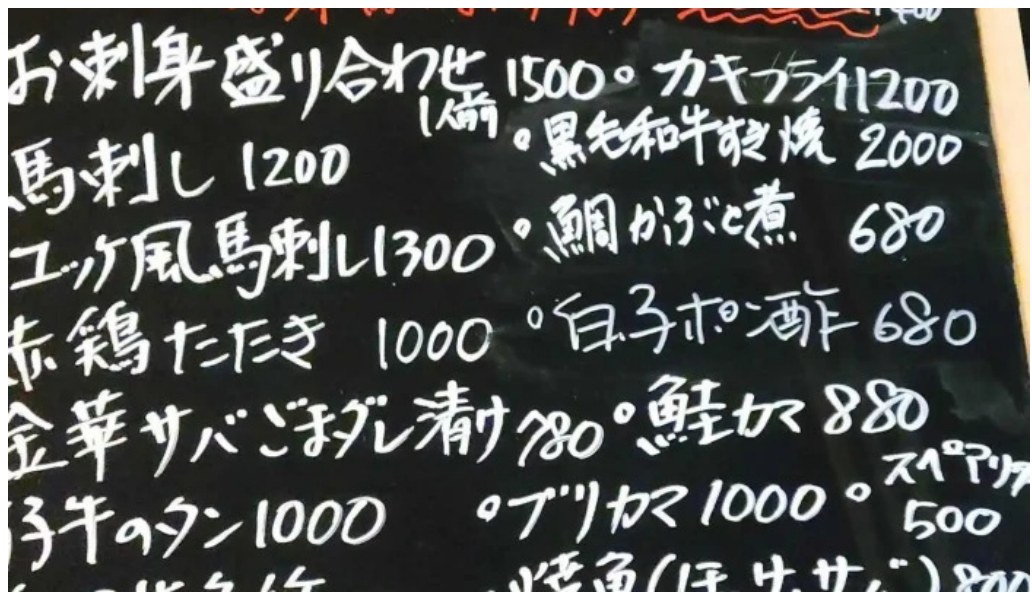 お刺身盛り合わせ 1人前 1500
馬刺し 1200
ユッケ風馬刺し 1300
赤鶏たたき 1000
金華サバごまダレ漬け 780
子牛のタン 1000
カキフライ 1200
黒毛和牛すき焼 2000
鯛かぶと煮 680
白子ポン酢 680
鮭カマ 880
ブリカマ 1000
スペアリブ 500
焼魚(ほっけ、サバ) 800